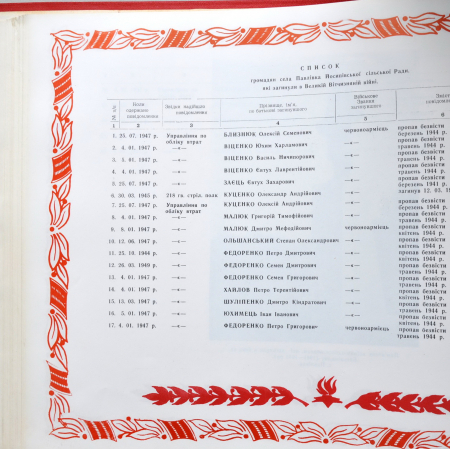 СПИСОК
громадян села Павлівка Носаківської сільської Ради,
які загинули в Великій Вітчизняній війні.
№ п/п Коли одержано повідомлення Звідки надійшло повідомлення Прізвище, ім'я, по батькові загиблого Військове Звання загиблого
1 2 3 4 5 6
1. 25. 07. 1947 р. Управління по обліку втрат БЛИЗНЮК Олексій Семенович червоноармієць пропав безвісти березень 1944 р.
2. 4. 01. 1947 р. —«— ВІЦЕНКО Юхим Харламович —«— пропав безвісти травень 1944 р.
3. 4. 01. 1947 р. —«— ВІЦЕНКО Василь Ничипорович —«— пропав безвісти травень 1944 р.
4. 4. 01. 1947 р. —«— ВІЦЕНКО Євтух Лаврентійович —«— пропав безвісти травень 1944 р.
5. 25. 07. 1947 р. —«— ЗАЄЦЬ Євтух Захарович —«— пропав безвісти березень 1941 р.
6. 30. 03. 1945 р. 218 гв. стріл. полк КУЦЕНКО Олександр Андрійович —«— загинув 12. 03.
7. 25. 07. 1947 р. Управління по обліку втрат КУЦЕНКО Олексій Андрійович —«— пропав безвісти березень 1944 р.
8. 4. 01. 1947 р. —«— МАЛЮК Григорій Тимофійович —«— пропав безвісти травень 1944 р.
9. 8. 01. 1947 р. —«— МАЛЮК Дмитро Мефодійович червоноармієць пропав безвісти квітень 1944 р.
10. 12. 06. 1947 р. —«— ОЛЬШАНСЬКИЙ Степан Олександрович —«— пропав безвісти квітень 1944 р.
11. 25. 10. 1946 р. —«— ФЕДОРЕНКО Петро Дмитрович —«— пропав безвісти травень 1944 р.
12. 26. 03. 1949 р. —«— ФЕДОРЕНКО Семен Дмитрович —«— пропав безвісти травень 1944 р.
13. 4. 01. 1947 р. —«— ФЕДОРЕНКО Семен Григорович —«— пропав безвісти травень 1944 р.
14. 4. 01. 1947 р. —«— ХАЙЛОВ Петро Терентійович —«— пропав безвісти травень 1944 р.
15. 13. 03. 1947 р. —«— ШУЛІПЕНКО Дмитро Кіндратович —«— пропав безвісти квітень 1944 р.
16. 5. 01. 1947 р. —«— ЮХИМЕЦЬ Іван Іванович —«— пропав безвісти квітень 1944 р.
17. 4. 01. 1947 р. —«— ФЕДОРЕНКО Петро Григорович червоноармієць пропав безвісти травень 1944 р.